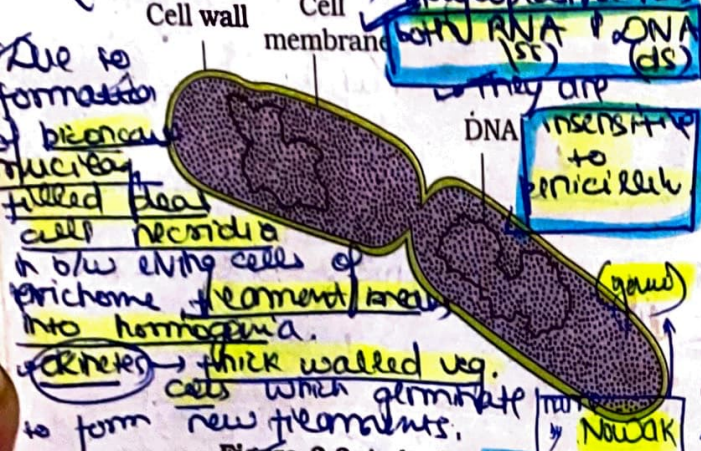 Cell wall
Cell
membrane
both RNA & DNA
(ss) (ds)
They are
insensitive
to
penicillin
DNA
Due to
formation
of biconcave
mucilage
filled dead
cells necridia
in b/w living cells of
trichome filament breaks
into hormogonia.
akinetes → thick walled veg.
cells which germinate
to form new filaments.
(genus)
Nowak